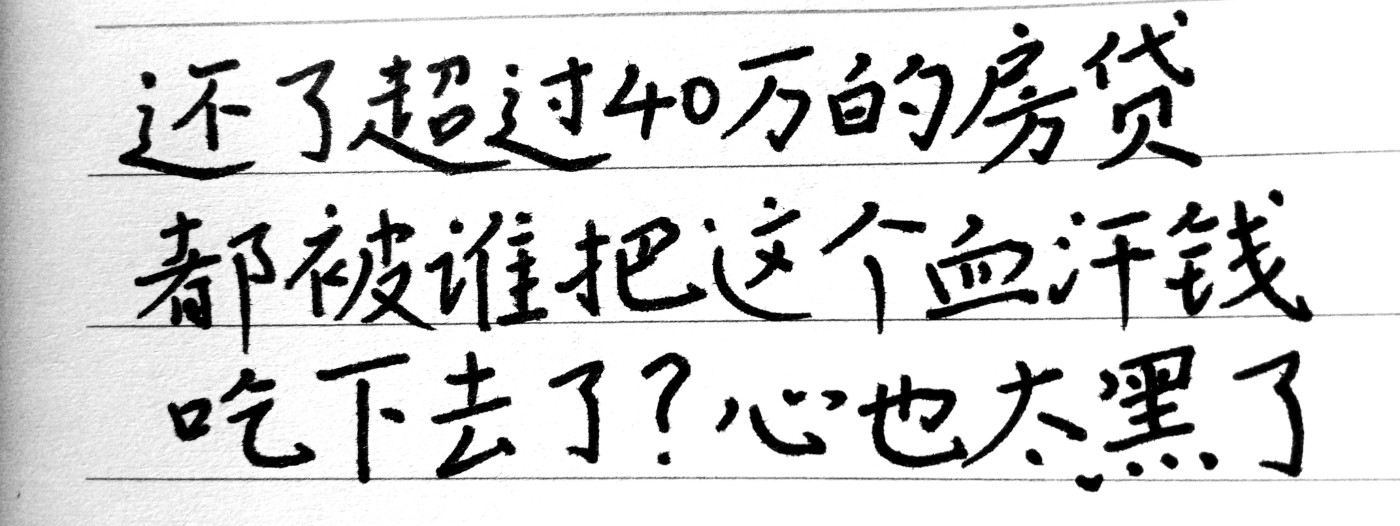 还了超过40万的房贷
都被谁把这个血汗钱
吃下去了?心也太黑了